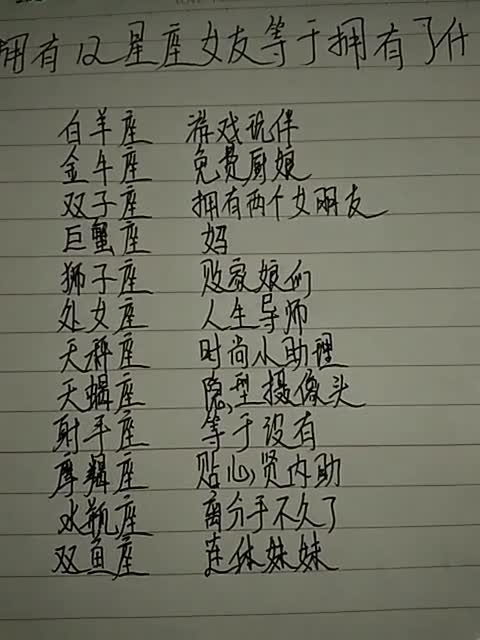 拥有12星座女友等于拥有了什
白羊座 游戏玩伴
金牛座 免费厨娘
双子座 拥有两个女朋友
巨蟹座 妈
狮子座 败家娘们
处女座 人生导师
天秤座 时尚小助理
天蝎座 隐型摄像头
射手座 等于没有
摩羯座 贴心贤内助
水瓶座 离分手不久了
双鱼座 连体妹妹